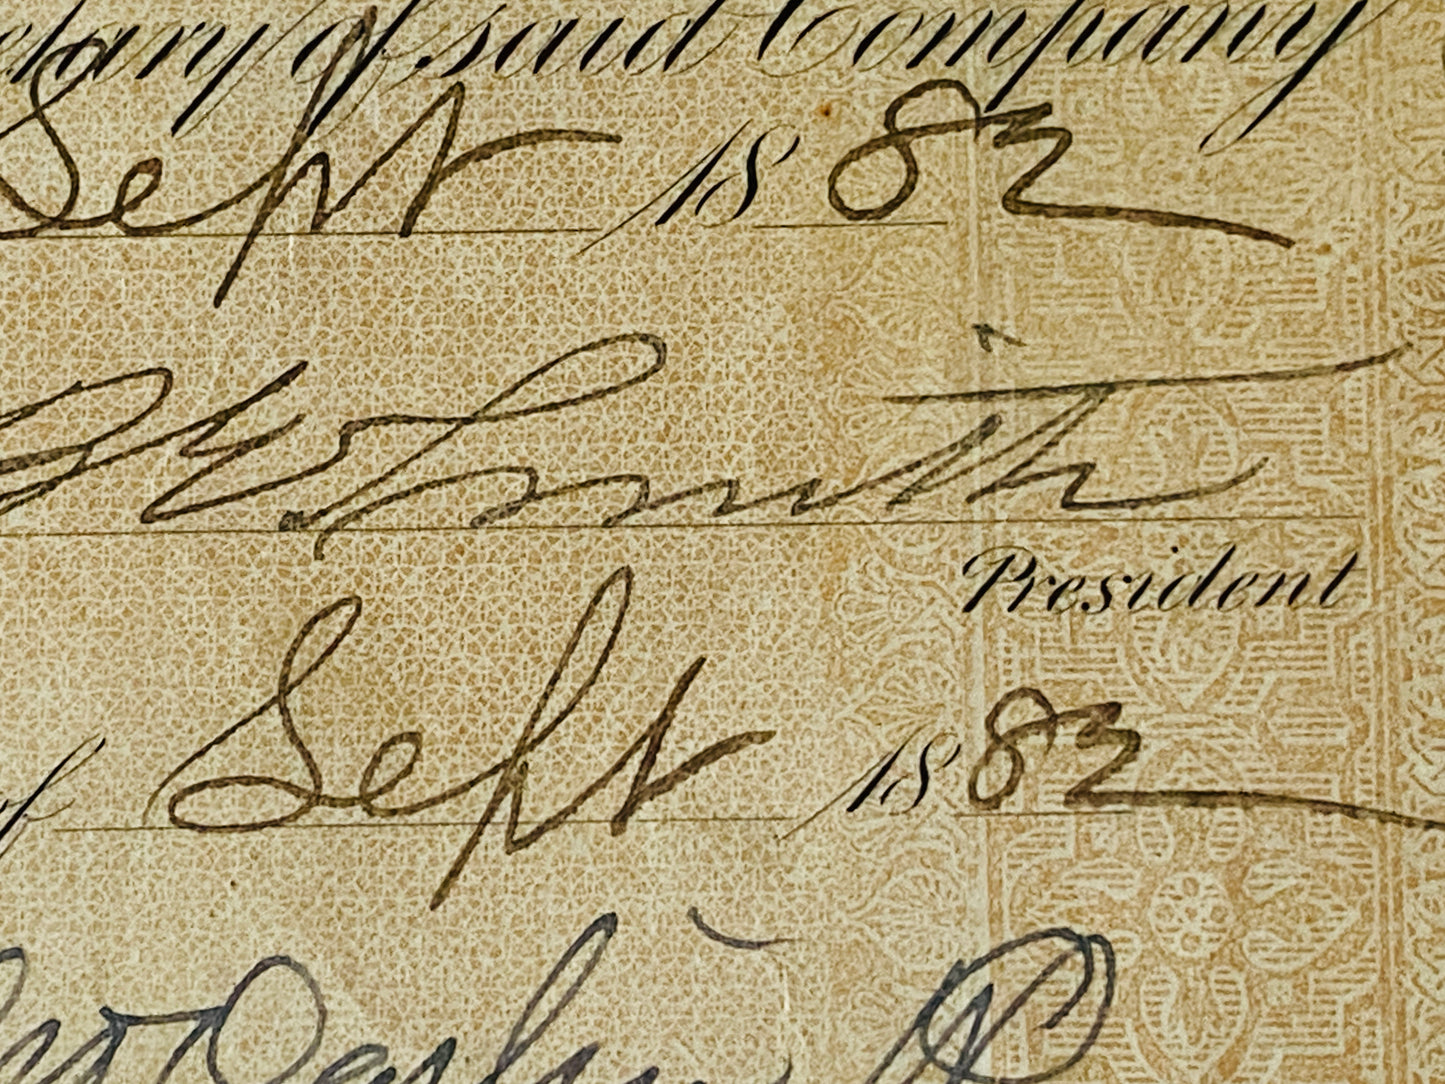 etary of said Company
Sept 1882
Smith
President
of Sept 1882